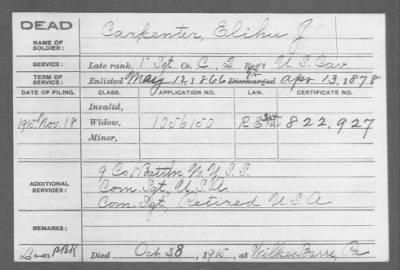 DEAD
NAME OF SOLDIER: Carpenter, Elihu J
SERVICE: Late rank, 1" Sgt. Co. C, 2 Reg't U.S. Cav
TERM OF SERVICE: Enlisted May 12, 1866 Discharged to Apr 13, 1878
DATE OF FILING. CLASS. APPLICATION NO. LAW. CERTIFICATE NO.
Invalid,
1915, Nov. 18 Widow, 1056150 822,927
Minor,
ADDITIONAL SERVICES: 9 Co. 1 Battln N.Y. S.S.
Com. Sgt. U.S.A.
Com. Sgt. Retired U.S.A
REMARKS:
Died Oct 28, 1915, at Wilkes Barre, Pa